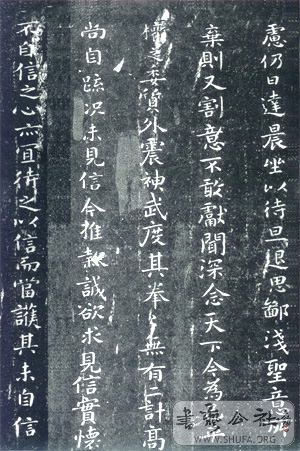 慮仍日達晨坐以待旦退思鄙淺聖意所
棄則又割意不敢獻聞深念天下今為
權之委質外震神武度其拳〻無有二計高
尚自疏况未見信今推款誠欲求見信實懷
不自信之心亦宜待之以信而當護其未自信
書藝公社
WWW.SHUFA.ORG